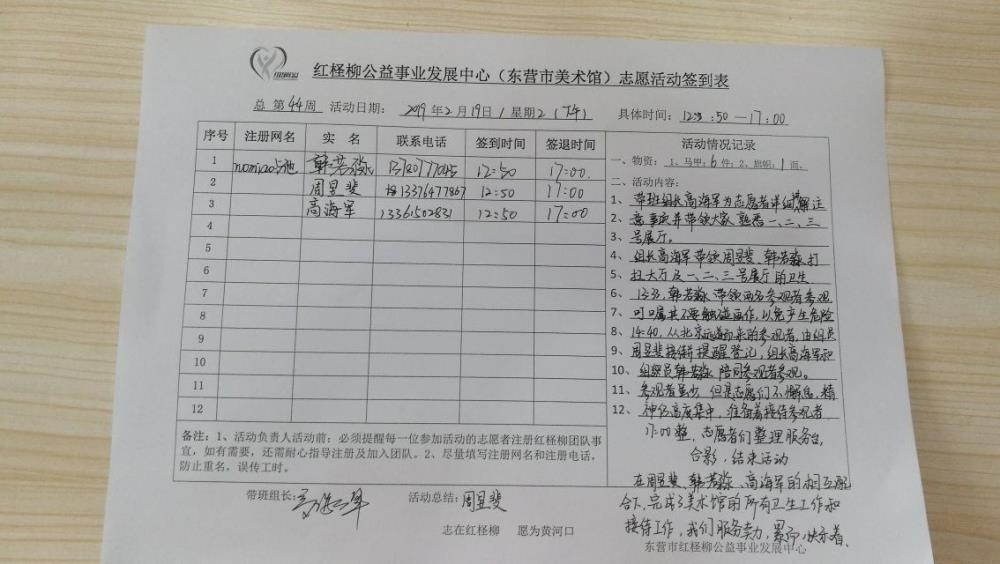 红柽柳公益事业发展中心（东营市美术馆）志愿活动签到表
总 第44周 活动日期： 2019年2月19日 星期2（下午） 具体时间：12：50—17：00
序号 注册网名 实 名 联系电话 签到时间 签退时间
1 韩若淼 12:50 17:00.
2 周昱斐 13376477867 12:50 17:00
3 高海军 13361502831 12:50 17:00
4
5
6
7
8
9
10
11
12
备注：1、活动负责人活动前：必须提醒每一位参加活动的志愿者注册红柽柳团队事
宜，如有需要，还需耐心指导注册及加入团队。2、尽量填写注册网名和注册电话，
防止重名，误传工时。
带班组长： 活动总结：周昱斐
志在红柽柳 愿为黄河口
活动情况记录
一、物资：1、马甲：6件；2、旗帜：1面。
二、活动内容：
1、带班组长高海军为志愿者详细讲解注
2、意事项并带领大家熟悉一、二、三
3、号展厅。
4、组长高海军带领周昱斐、韩若淼打
5、扫大厅及一、二、三号展厅的卫生
6、韩若淼带领两名参观者参观
7、叮嘱其不要触碰画作，以免产生危险
8、14:40，从北京远道而来的参观者，由组员
9、周昱斐接待提醒登记，组长高海军和
10、组员韩若淼陪同参观者参观。
11、参观者虽少，但是志愿们不懈怠，精
12、神仍高度集中，准备着接待参观者
17:00整，志愿者们整理服务台，
合影，结束活动
在周昱斐、韩若淼、高海军的相互配
合下，完成了美术馆的所有卫生工作和
接待工作，我们服务卖力，累而快乐着。
东营市红柽柳公益事业发展中心